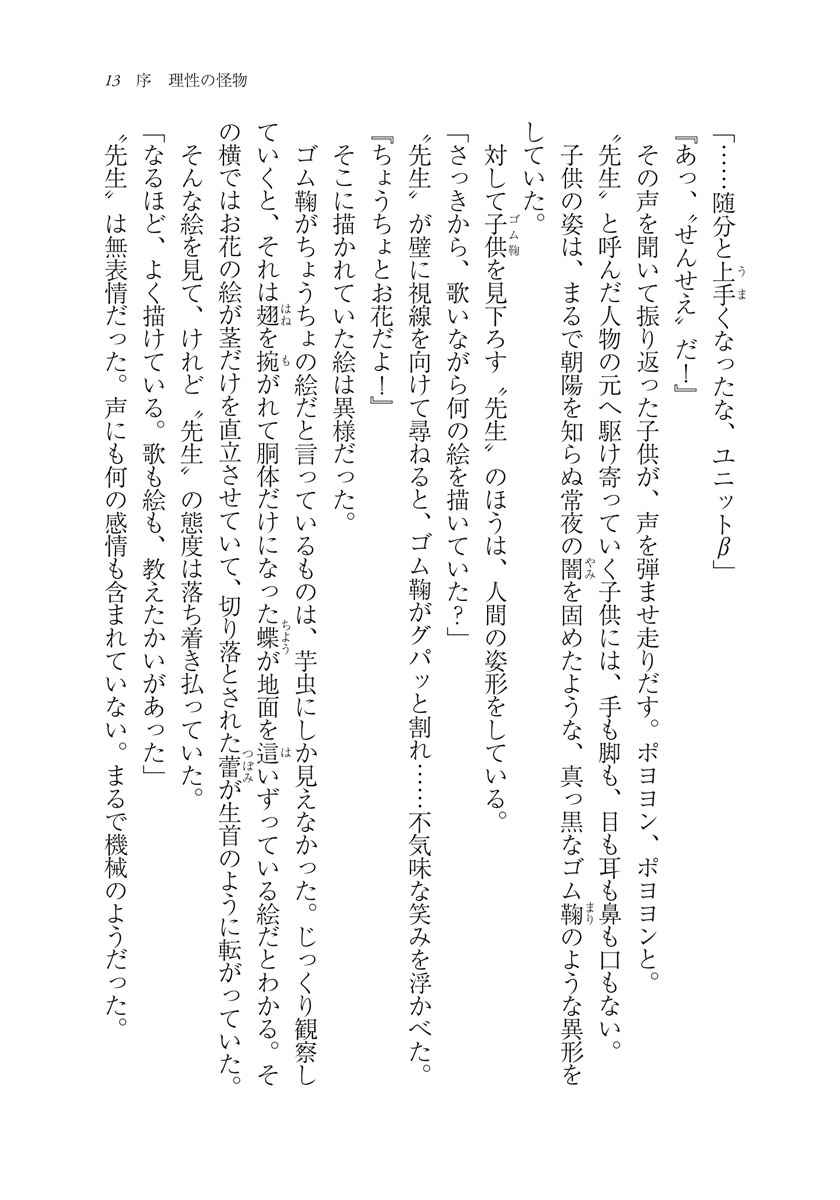 13　序　理性の怪物
「……随分と上手くなったな、ユニットβ」
『あっ、〝せんせえ〟だ！』
　その声を聞いて振り返った子供が、声を弾ませ走りだす。ポヨヨン、ポヨヨンと。
〝先生〟と呼んだ人物の元へ駆け寄っていく子供には、手も脚も、目も耳も鼻も口もない。
　子供の姿は、まるで朝陽を知らぬ常夜の闇を固めたような、真っ黒なゴム鞠のような異形を
していた。
　対して子供を見下ろす〝先生〟のほうは、人間の姿形をしている。
「さっきから、歌いながら何の絵を描いていた？」
〝先生〟が壁に視線を向けて尋ねると、ゴム鞠がグパッと割れ……不気味な笑みを浮かべた。
『ちょうちょとお花だよ！』
　そこに描かれていた絵は異様だった。
　ゴム鞠がちょうちょの絵だと言っているものは、芋虫にしか見えなかった。じっくり観察し
ていくと、それは翅を捥がれて胴体だけになった蝶が地面を這いずっている絵だとわかる。そ
の横ではお花の絵が茎だけを直立させていて、切り落とされた蕾が生首のように転がっていた。
　そんな絵を見て、けれど〝先生〟の態度は落ち着き払っていた。
「なるほど、よく描けている。歌も絵も、教えたかいがあった」
〝先生〟は無表情だった。声にも何の感情も含まれていない。まるで機械のようだった。